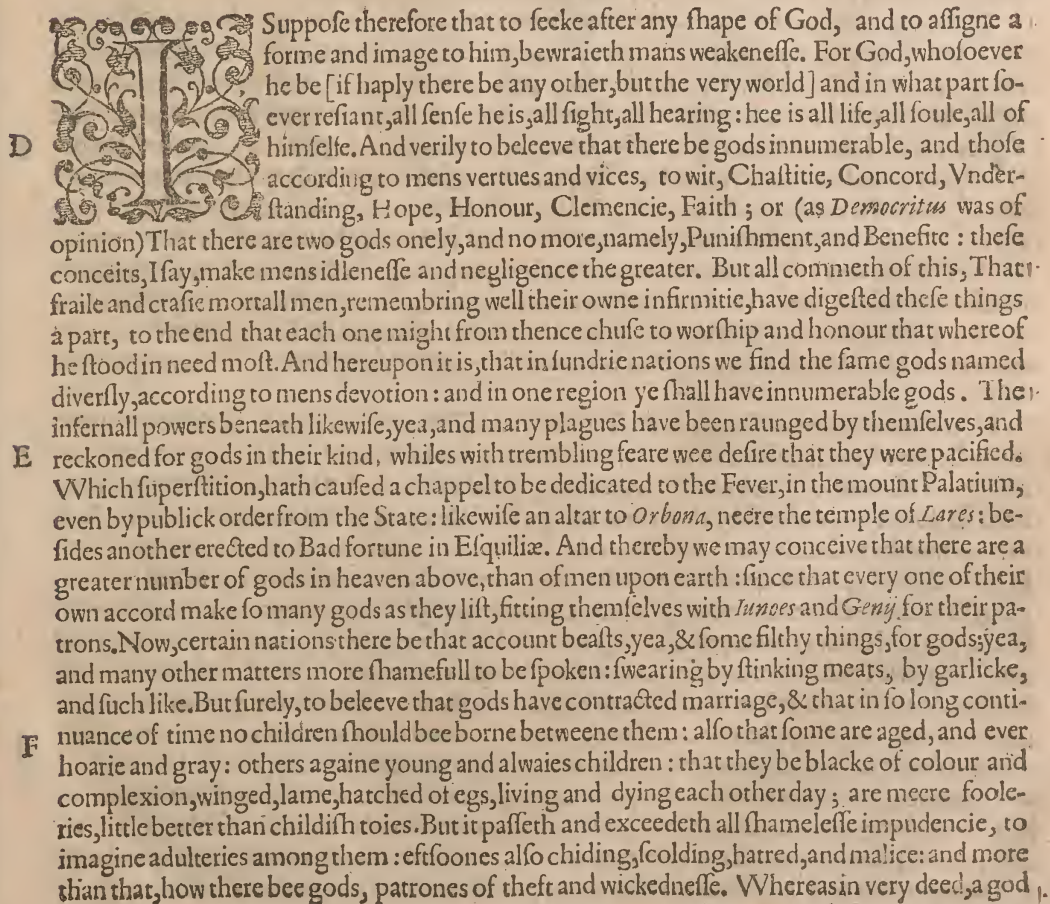 I Suppose therefore that to seeke after any shape of God, and to assigne a
forme and image to him, bewraieth mans weakenesse. For God, whosoever
he be [if haply there be any other, but the very world] and in what part so-
ever resiant, all sense he is, all sight, all hearing: hee is all life, all soule, all of
D himselfe. And verily to beleeve that there be gods innumerable, and those
according to mens vertues and vices, to wit, Chastitie, Concord, Vnder-
standing, Hope, Honour, Clemencie, Faith; or (as Democritus was of
opinion) That there are two gods onely, and no more, namely, Punishment, and Benefite: these
conceits, I say, make mens idlenesse and negligence the greater. But all commeth of this, That
fraile and crasie mortall men, remembring well their owne infirmitie, have digested these things
à part, to the end that each one might from thence chuse to worship and honour that whereof
he stood in need most. And hereupon it is, that in sundrie nations we find the same gods named
diversly, according to mens devotion: and in one region ye shall have innumerable gods. The
infernall powers beneath likewise, yea, and many plagues have been raunged by themselves, and
E reckoned for gods in their kind, whiles with trembling feare wee desire that they were pacified.
Which superstition, hath caused a chappel to be dedicated to the Fever, in the mount Palatium,
even by publick order from the State: likewise an altar to Orbona, neere the temple of Lares: be-
sides another erected to Bad fortune in Esquiliæ. And thereby we may conceive that there are a
greater number of gods in heaven above, than of men upon earth: since that every one of their
own accord make so many gods as they list, fitting themselves with Iunoes and Genij for their pa-
trons. Now, certain nations there be that account beasts, yea, & some filthy things, for gods; yea,
and many other matters more shamefull to be spoken: swearing by stinking meats, by garlicke,
and such like. But surely, to beleeve that gods have contracted marriage, & that in so long conti-
F nuance of time no children should bee borne betweene them: also that some are aged, and ever
hoarie and gray: others againe young and alwaies children: that they be blacke of colour and
complexion, winged, lame, hatched of egs, living and dying each other day; are meere foole-
ries, little better than childish toies. But it passeth and exceedeth all shamelesse impudencie, to
imagine adulteries among them: eftsoones also chiding, scolding, hatred, and malice: and more
than that, how there bee gods, patrones of theft and wickednesse. Whereas in very deed, a god